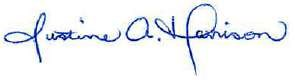 Justine A. Harrison